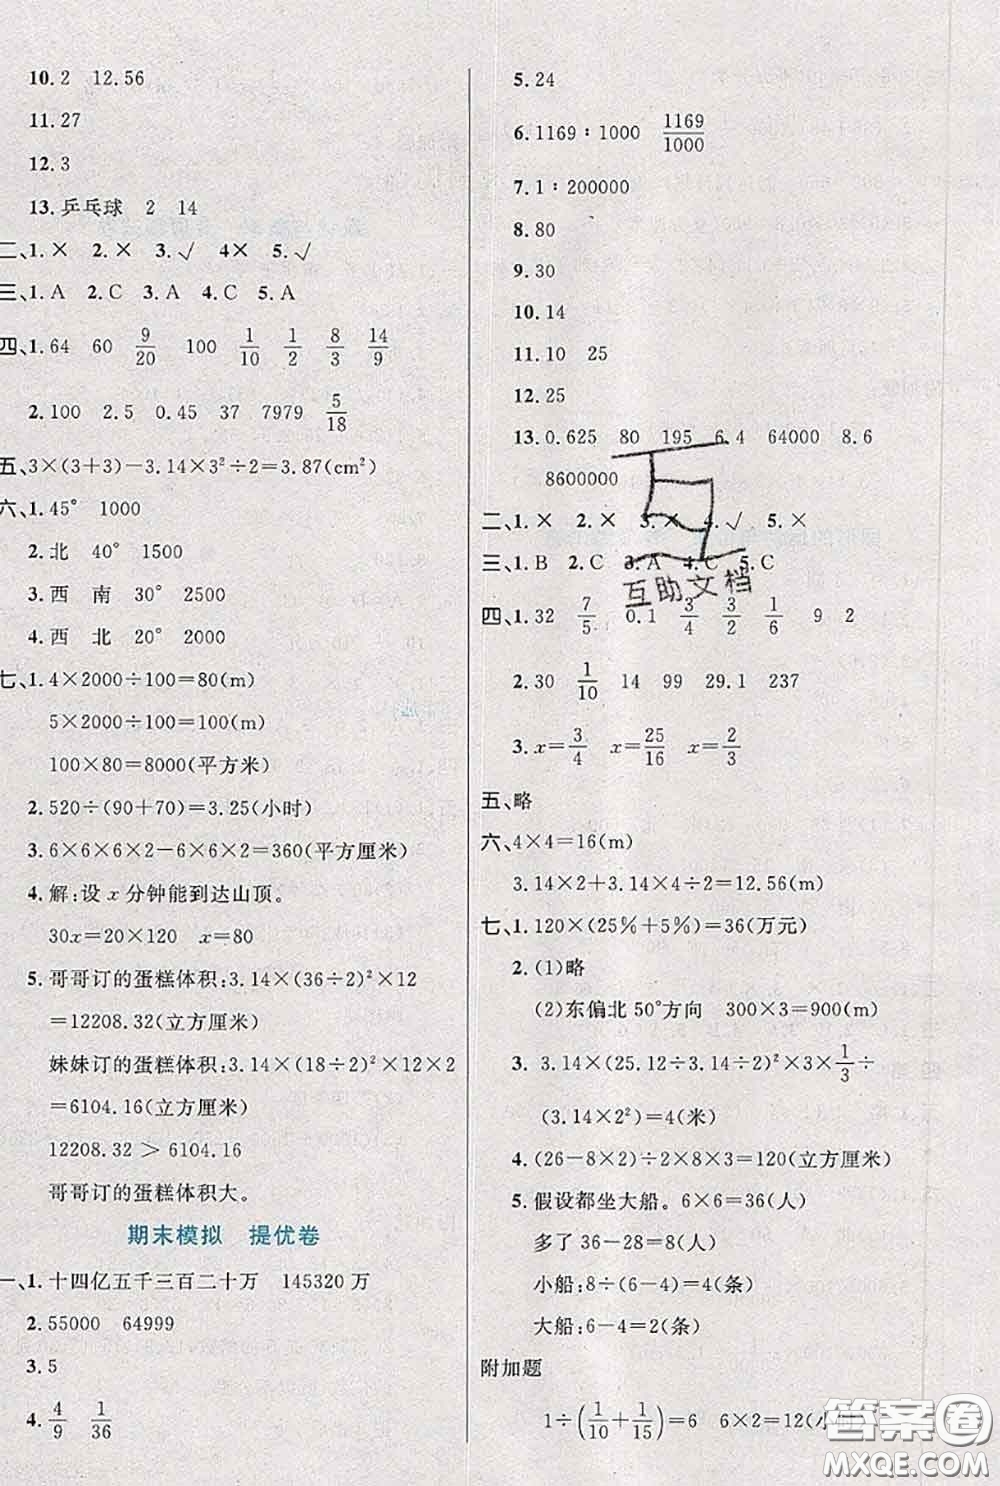 10.2　12.56
11.27
12.3
13.乒乓球　2　14
二、1.×　2.×　3.√　4×　5.√
三、1.A　2.C　3.A　4.C　5.A
四、1.64　60　9/20　100　1/10　1/2　8/3　14/9
2.100　2.5　0.45　37　7979　5/18
五、3×(3+3)-3.14×3²÷2=3.87(cm²)
六、1.45°　1000
2.北　40°　1500
3.西　南　30°　2500
4.西　北　20°　2000
七、1.4×2000÷100=80(m)
5×2000÷100=100(m)
100×80=8000(平方米)
2.520÷(90+70)=3.25(小时)
3.6×6×6×2-6×6×2=360(平方厘米)
4.解:设x分钟能到达山顶。
30x=20×120　x=80
5.哥哥订的蛋糕体积:3.14×(36÷2)²×12
=12208.32(立方厘米)
妹妹订的蛋糕体积:3.14×(18÷2)²×12×2
=6104.16(立方厘米)
12208.32 > 6104.16
哥哥订的蛋糕体积大。
期末模拟　提优卷
一、1.十四亿五千三百二十万　145320万
2.55000　64999
3.5
4.4/9　1/36
5.24
6.1169∶1000　1169/1000
7.1∶200000
8.80
9.30
10.14
11.10　25
12.25
13.0.625　80　195　6.4　64000　8.6
8600000
二、1.×　2.×　3.×　4.√　5.×
三、1.B　2.C　3.A　4.C　5.C
四、1.32　7/5　0.1　3/4　3/2　1/6　9　2
2.30　1/10　14　99　29.1　237
3.x=3/4　x=25/16　x=2/3
五、略
六、4×4=16(m)
3.14×2+3.14×4÷2=12.56(m)
七、1.120×(25%+5%)=36(万元)
2.(1)略
(2)东偏北50°方向　300×3=900(m)
3.3.14×(25.12÷3.14÷2)²×3×1/3÷
(3.14×2²)=4(米)
4.(26-8×2)÷2×8×3=120(立方厘米)
5.假设都坐大船。6×6=36(人)
多了36-28=8(人)
小船:8÷(6-4)=4(条)
大船:6-4=2(条)
附加题
1÷(1/10+1/15)=6　6×2=12(小时)
互助文档
答案圈
MXQE.COM